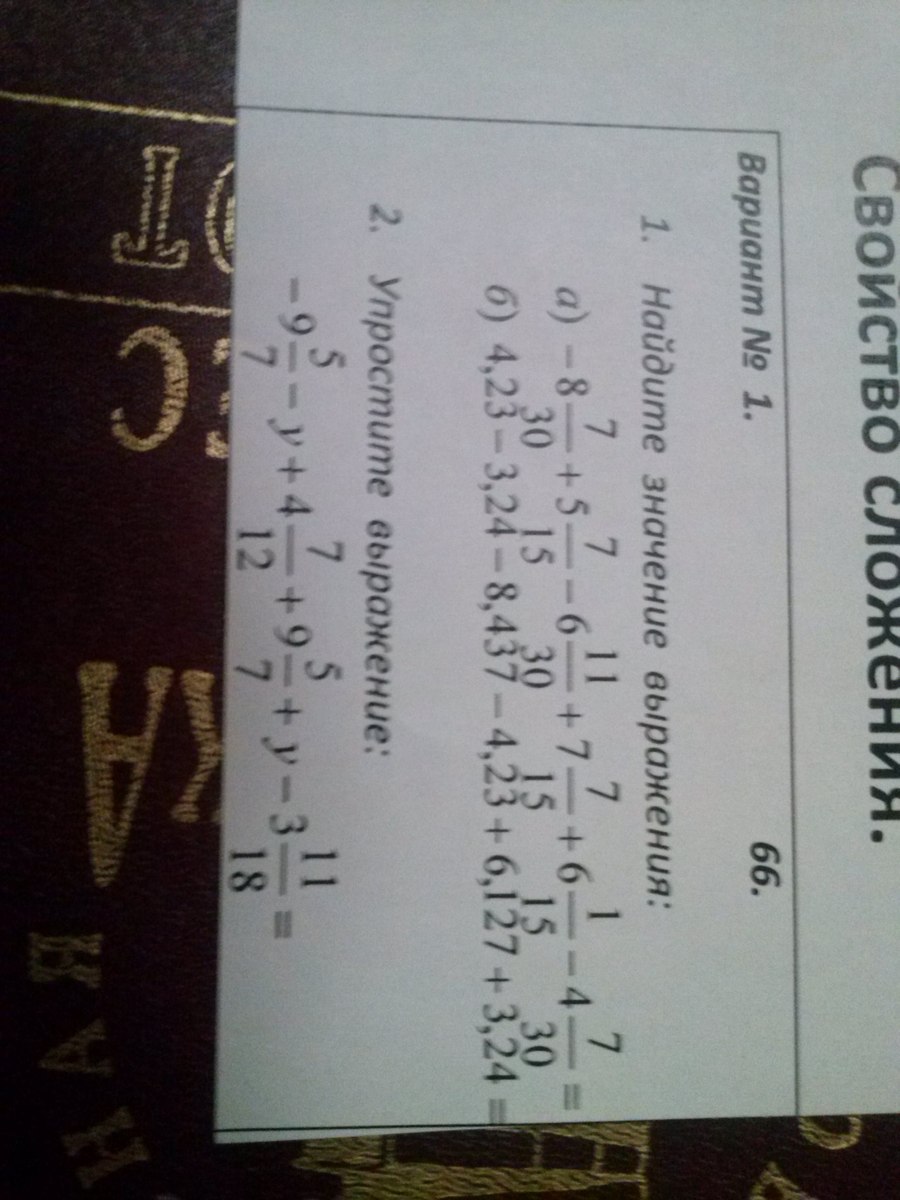 Свойство сложения.
Вариант № 1. 66.
1. Найдите значение выражения:
а) −8 7/30 + 5 7/15 − 6 11/30 + 7 7/15 + 6 1/15 − 4 7/30 =
б) 4,23 − 3,24 − 8,437 − 4,23 + 6,127 + 3,24 =
2. Упростите выражение:
−9 5/7 − y + 4 7/12 + 9 5/7 + y − 3 11/18 =